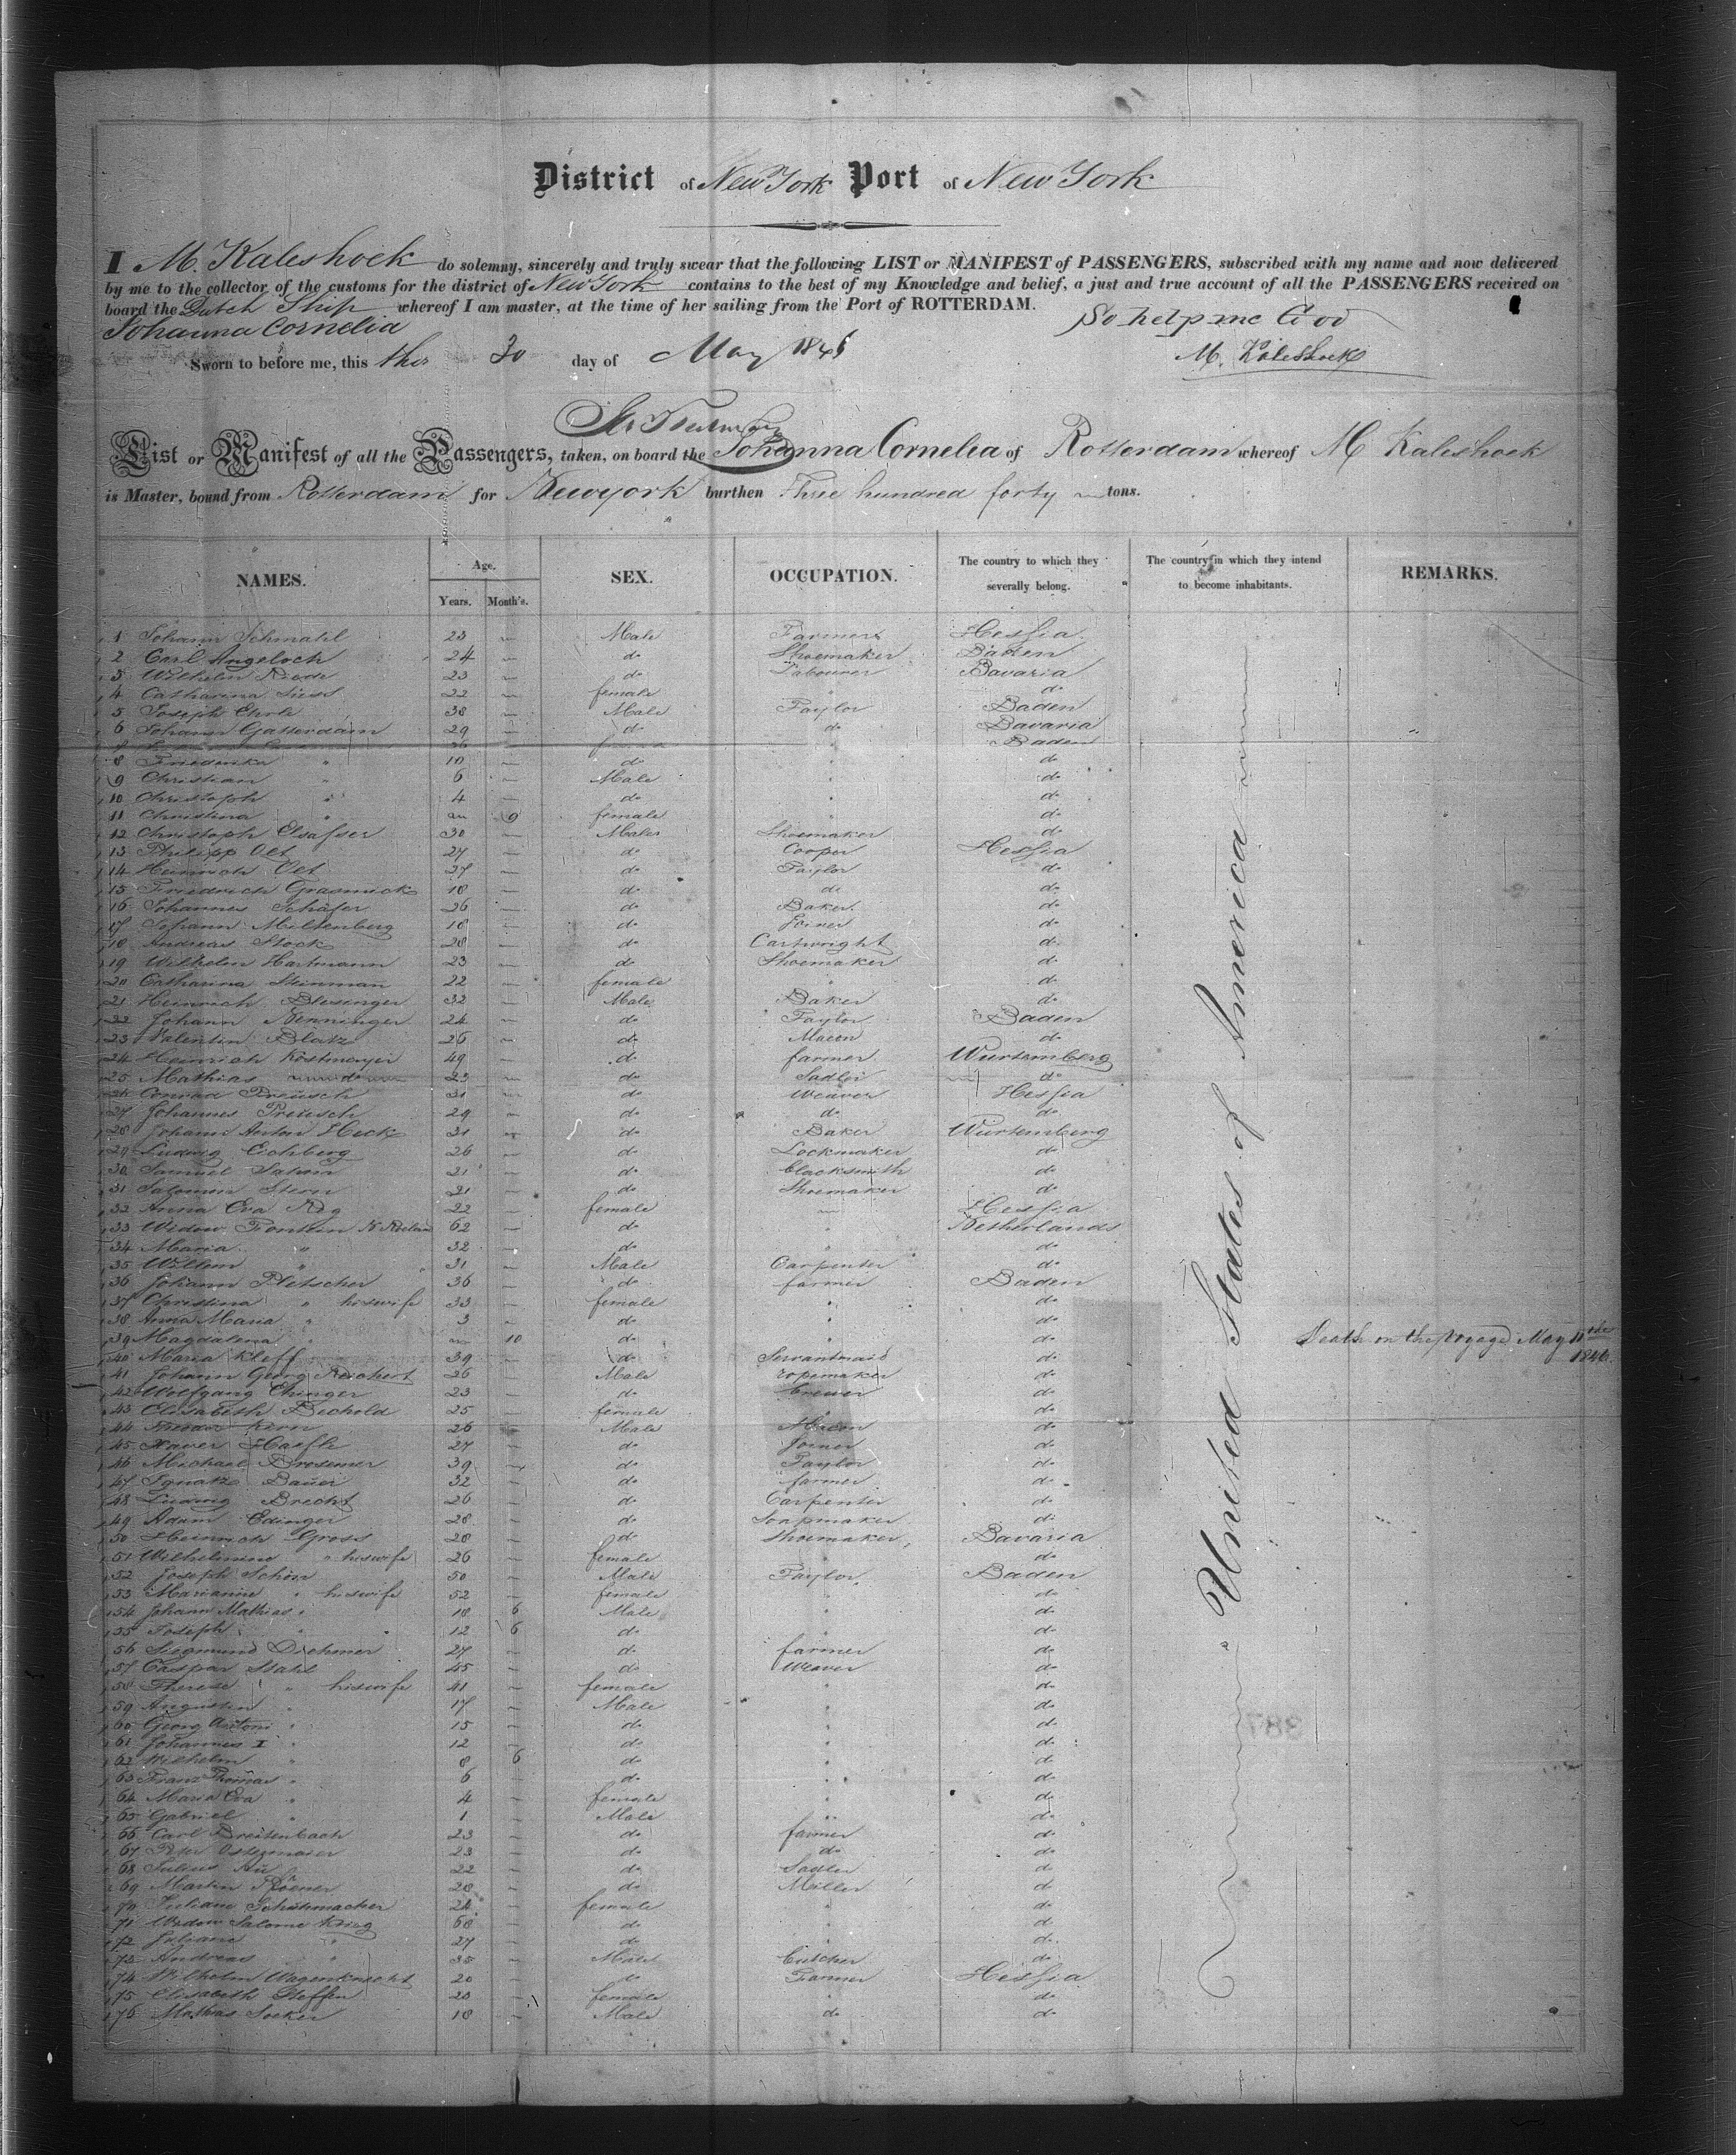 District of New York Port of New York
I M. Kaleshoek do solemny, sincerely and truly swear that the following LIST or MANIFEST of PASSENGERS, subscribed with my name and now delivered
by me to the collector of the customs for the district of New York contains to the best of my Knowledge and belief, a just and true account of all the PASSENGERS received on
board the Dutch Ship whereof I am master, at the time of her sailing from the Port of ROTTERDAM.
Johanna Cornelia
So help me God
Sworn to before me, this 30 day of May 1846
M. Kaleshoek
List or Manifest of all the Passengers, taken, on board the Johanna Cornelia of Rotterdam whereof M Kaleshoek
is Master, bound from Rotterdam for Newyork burthen Three hundred forty tons.
NAMES. Age. Years. Month's. SEX. OCCUPATION. The country to which they severally belong. The country in which they intend to become inhabitants. REMARKS.
1 Johann Schmahl 23 Male Farmer Hessia
2 Carl Angeloch 24 do Shoemaker Baden
3 Wilhelm 23 do Labourer Bavaria
4 Catharina Suess 22 female " do
5 Joseph Ehrle 38 Male Taylor Baden
6 Johann Gatterdam 29 do do Bavaria
Baden
8 Friederika " 10 do " do
9 Christian " 6 Male " do
10 Christoph " 4 do " do
11 Christina " 9 female " do
12 Christoph Elsasser 30 Male Shoemaker do
13 Philipp Oet 27 do Cooper Hessia
14 Heinrich Oet 27 do Taylor do
15 Friedrich Grasmuck 18 do do do
16 Johannes Schäfer 26 do Baker do
17 Johann Miltenberg 18 do Joiner do
18 Andreas Stock 28 do Cartwright do
19 Wilhelm Hartmann 23 do Shoemaker do
20 Catharina Steinman 22 female " do
21 Heinrich Blesinger 32 Male Baker do
22 Johann Nenninger 24 do Taylor Baden
23 Valentin Blatz 26 do Mason do
24 Heinrich Kostmayer 49 do farmer Wurtemberg
25 Mathias do 23 do Sadler do
26 Conrad Preusch 31 do Weaver Hessia
27 Johannes Preusch 29 do do do
28 Johann Anton Heck 31 do Baker Wurtemberg
29 Ludwig Eichberg 26 do Lockmaker do
30 Samuel 21 do blacksmith do
31 Salomon Stern 21 do Shoemaker do
32 Anna Eva 22 female Hessia
33 Widow Fontein 62 do " Netherlands
34 Maria " 32 do " do
35 Willem " 31 Male Carpenter do
36 Johann Pletscher 36 do farmer Baden
37 Christina " hiswife 33 female " do
38 Anna Maria " 3 do " do
39 Magdalena " 10 do " do Death on the voyage May 10the 1846.
40 Maria Kleff 39 do Servantmaid do
41 Johann Georg Reichert 26 Male ropemaker do
42 Wolfgang Ehinger 23 do brewer do
43 Elisabeth Bechold 25 female " do
44 Kern 26 Male Mason do
45 Xaver Haefle 27 do Joiner do
46 Michael Bresemer 39 do Taylor do
47 Ignatz Bauer 32 do farmer do
48 Ludwig Brecht 26 do Carpenter do
49 Adam Edinger 28 do Soapmaker do
50 Heinrich Gross 28 do Shoemaker Bavaria
51 Wilhelmine " hiswife 26 female " do
52 Joseph Schön 50 Male Taylor Baden
53 Marianne " hiswife 52 female " do
54 Johann Mathias " 18 6 Male " do
55 Joseph " 12 6 do " do
56 Siegmund Diehmer 27 do farmer do
57 Caspar Stahl 45 do Weaver do
58 Therese " hiswife 41 female " do
59 Augustin " 17 Male " do
60 Georg Antoni " 15 do " do
61 Johannes I " 12 do " do
62 Wilhelm " 8 6 do " do
63 Franz Thomas " 6 do " do
64 Maria Eva " 4 female " do
65 Gabriel " 1 Male " do
66 Carl Breitenbach 23 do farmer do
67 Peter Ostermaier 23 do do do
68 Julius Au 22 do Sadler do
69 Martin 28 do Miller do
70 Juliane Schuhmacher 24 female " do
71 Widow Salome Krieg 68 do " do
72 Juliane " 27 do " do
73 Andreas " 35 Male butcher do
74 Wilhelm Wagenknecht 20 do Farmer Hessia
75 Elisabeth Steffen 20 female " do
76 Mathias Socker 18 Male do do
United States of America
387